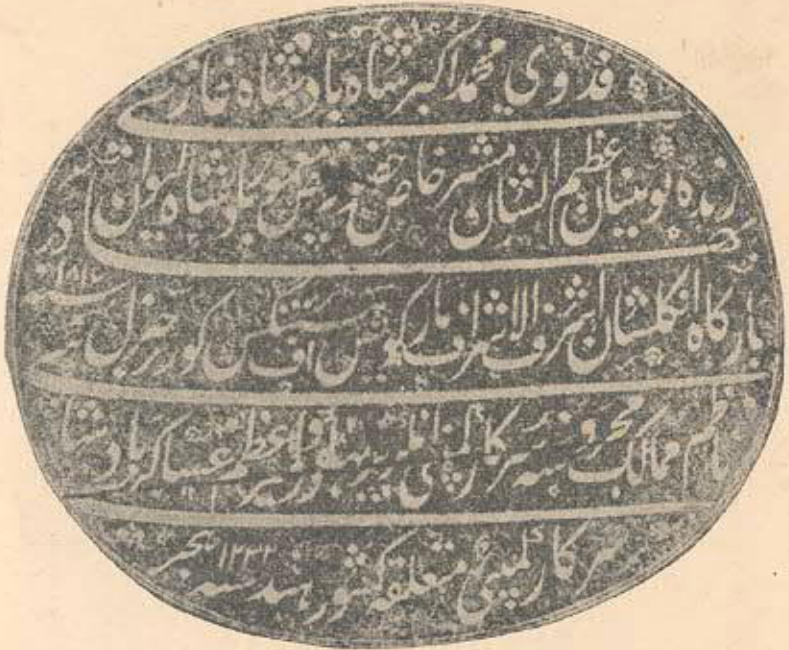 فدوی محمد اکبر شاه بادشاه غازی
زبده نوئینان عظیم الشان مشیر خاص حضور بادشاه کیوان
بارگاه انگلستان اشرف الاشراف مارکوئیس اف هستنگس گورنر جنرل
ناظم ممالک محروسه سرکار کمپنی انگریز بهادر و عساکر بادشاهی
سرکار کمپنی متعلقه کشور هند سنه ۱۲۳۲ هجری